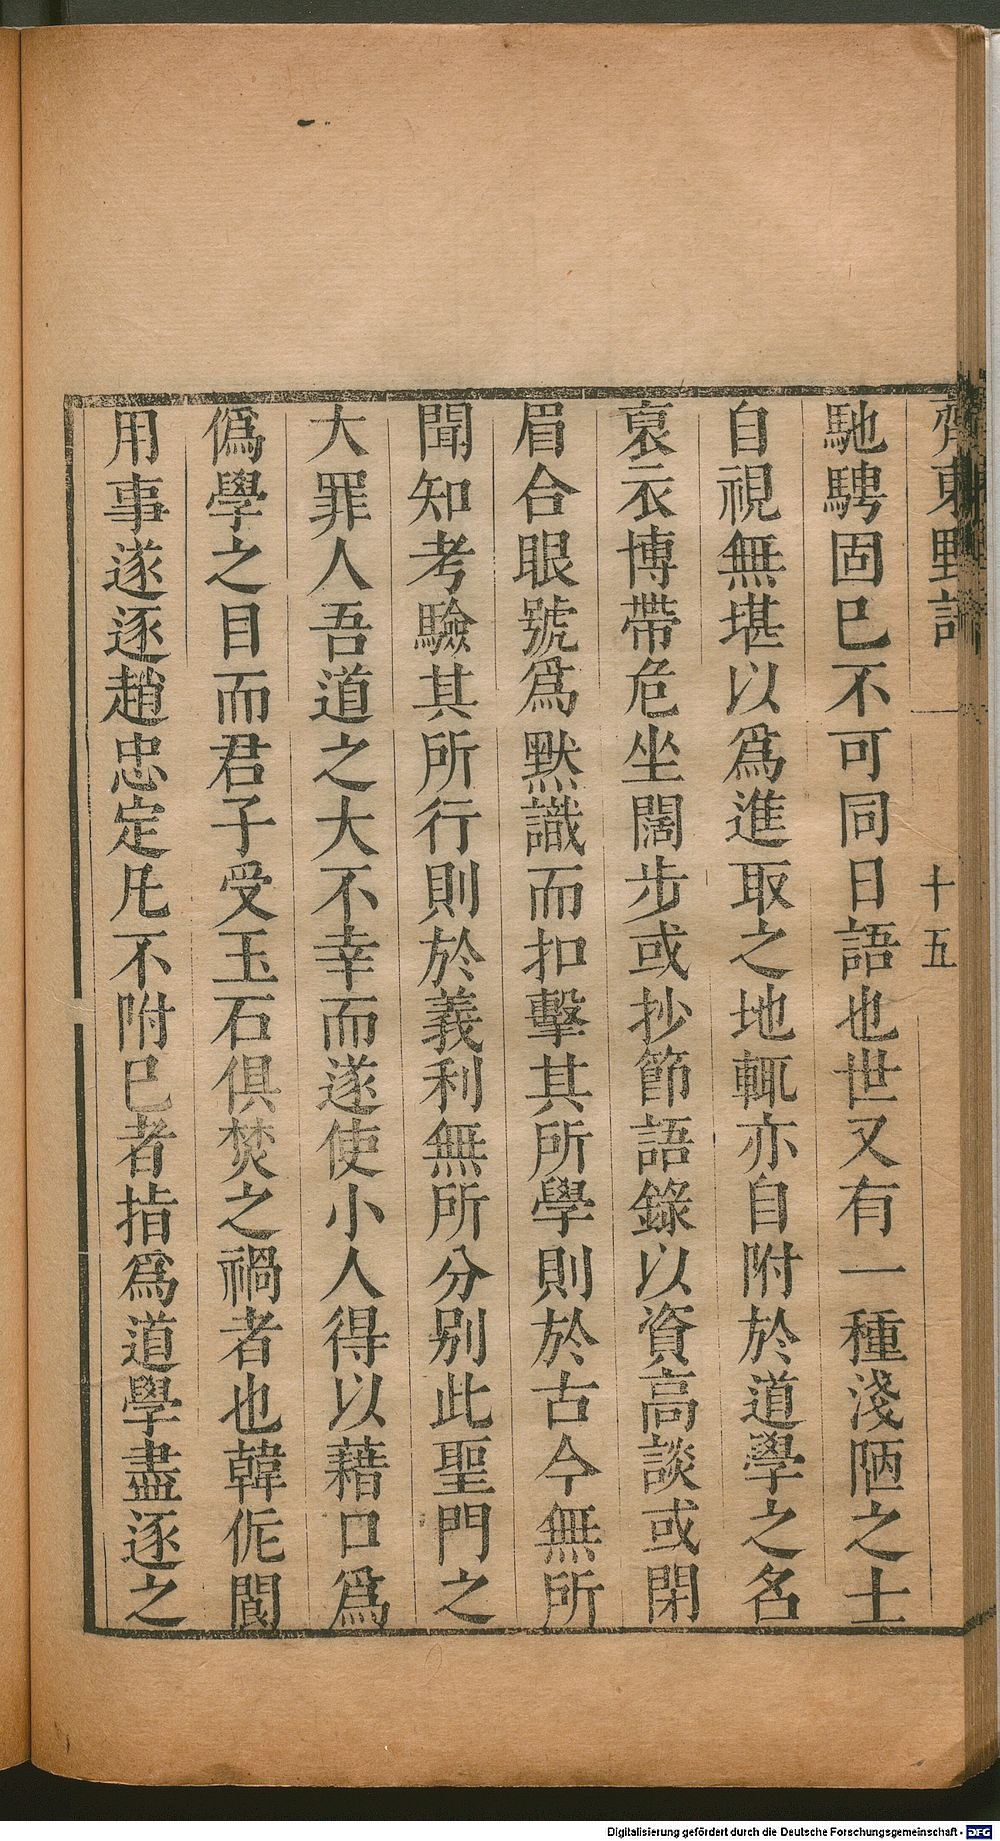 齊東野語
十五
馳騁固已不可同日語也世又有一種淺陋之士
自視無堪以爲進取之地輒亦自附於道學之名
裒衣博帶危坐闊步或抄節語錄以資高談或閉
眉合眼號爲默識而扣擊其所學則於古今無所
聞知考驗其所行則於義利無所分別此聖門之
大罪人吾道之大不幸而遂使小人得以藉口爲
僞學之目而君子受玉石俱焚之禍者也韓侂冑
用事遂逐趙忠定凡不附已者指爲道學盡逐之
Digitalisierung gefördert durch die Deutsche Forschungsgemeinschaft - DFG